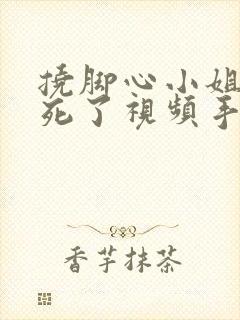 撓脚心小姐
死了視頻手
香芋抹茶